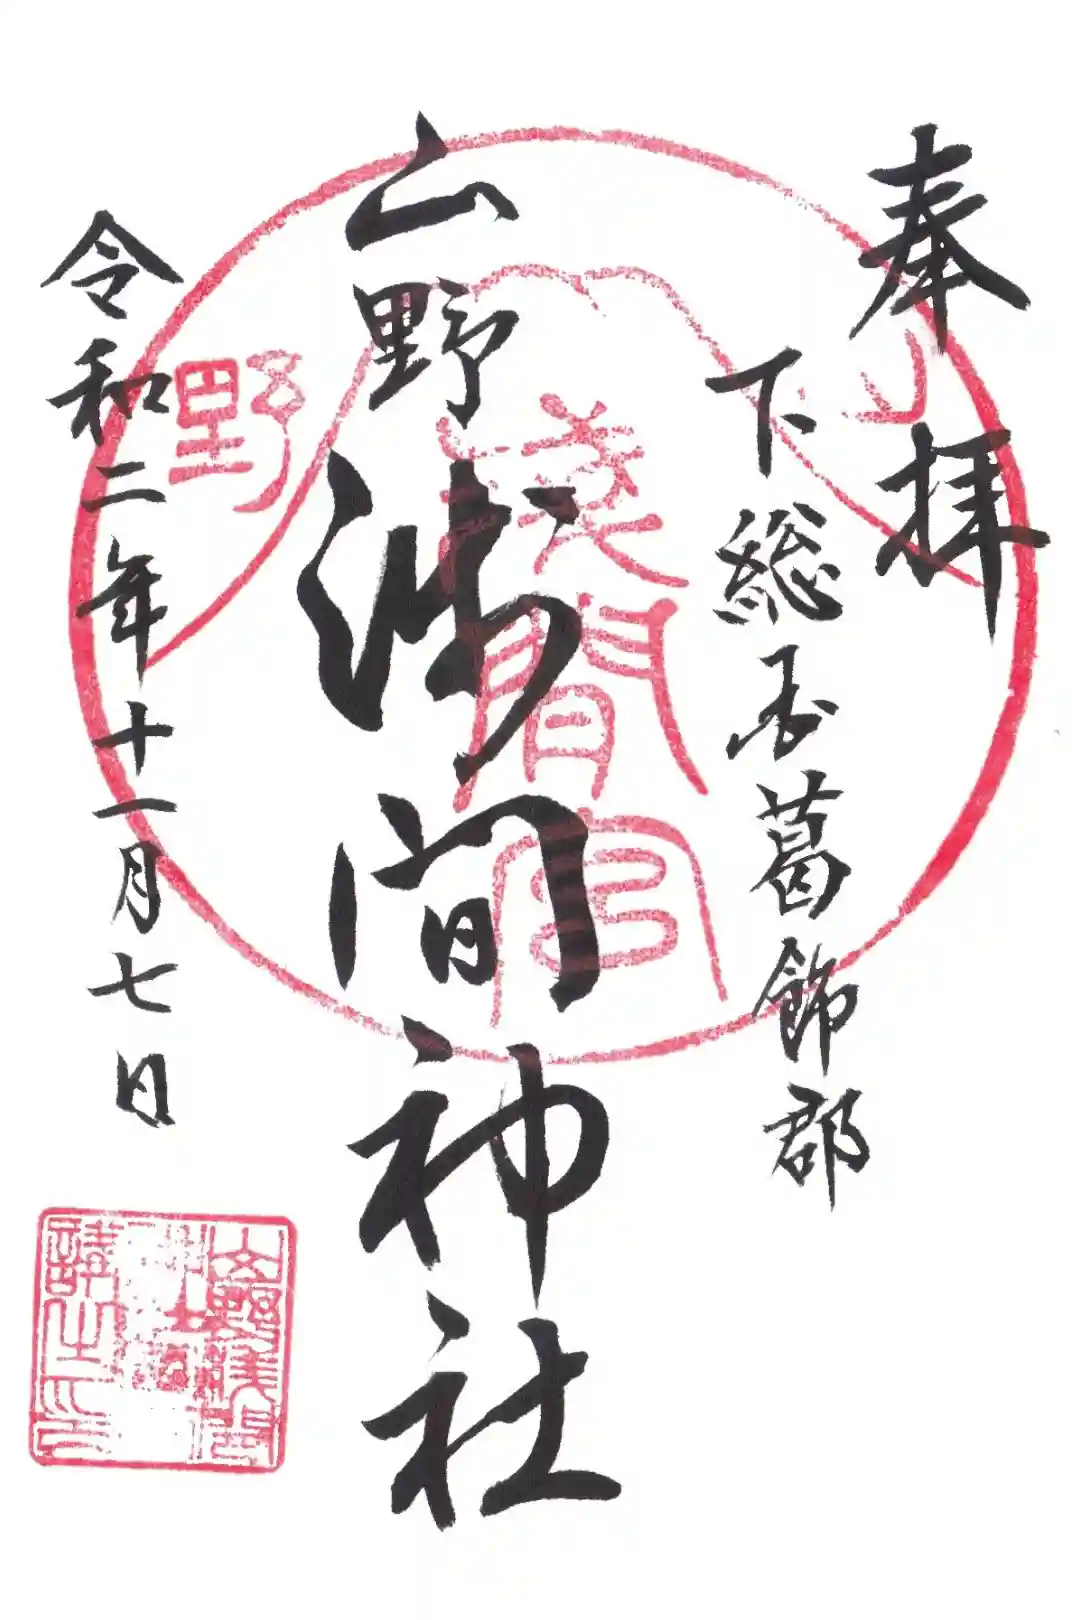 奉拝
下総国葛飾郡
山野浅間神社
令和二年十一月七日
山野
淺間宮